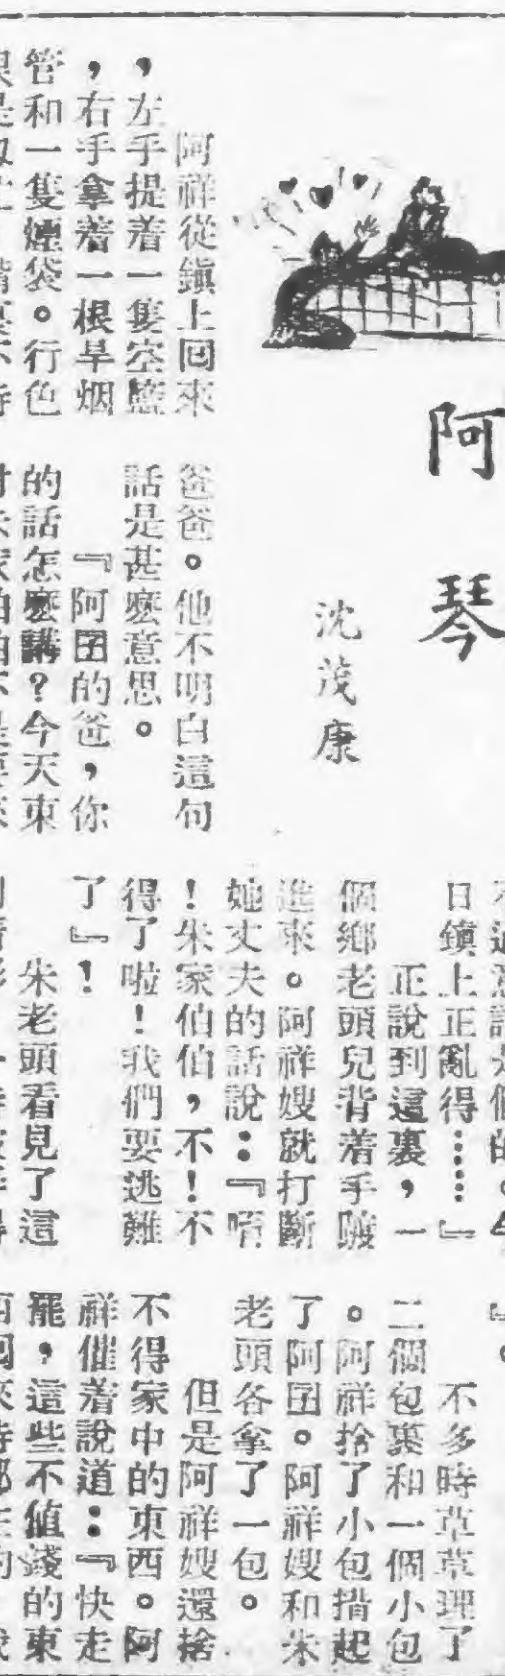 阿琴
沈茂康
阿祥從鎮上回來
，左手提着一隻空籃
，右手拿着一根旱烟
管和一隻煙袋。行色
爸爸。他不明白這句
話是甚麽意思。
『阿囝的爸，你
的話怎麽講？今天東
日鎮上正亂得……』
正說到這裏，一
個鄉老頭兒背着手踱
進來。阿祥嫂就打斷
她丈夫的話說：『唔
！朱家伯伯，不！不
得了啦！我們要逃難
了』！
朱老頭看見了這
』。
不多時草草理了
二個包裹和一個小包
。阿祥拾了小包揹起
了阿囝。阿祥嫂和朱
老頭各拿了一包。
但是阿祥嫂還捨
不得家中的東西。阿
祥催着說道：『快走
罷，這些不值錢的東